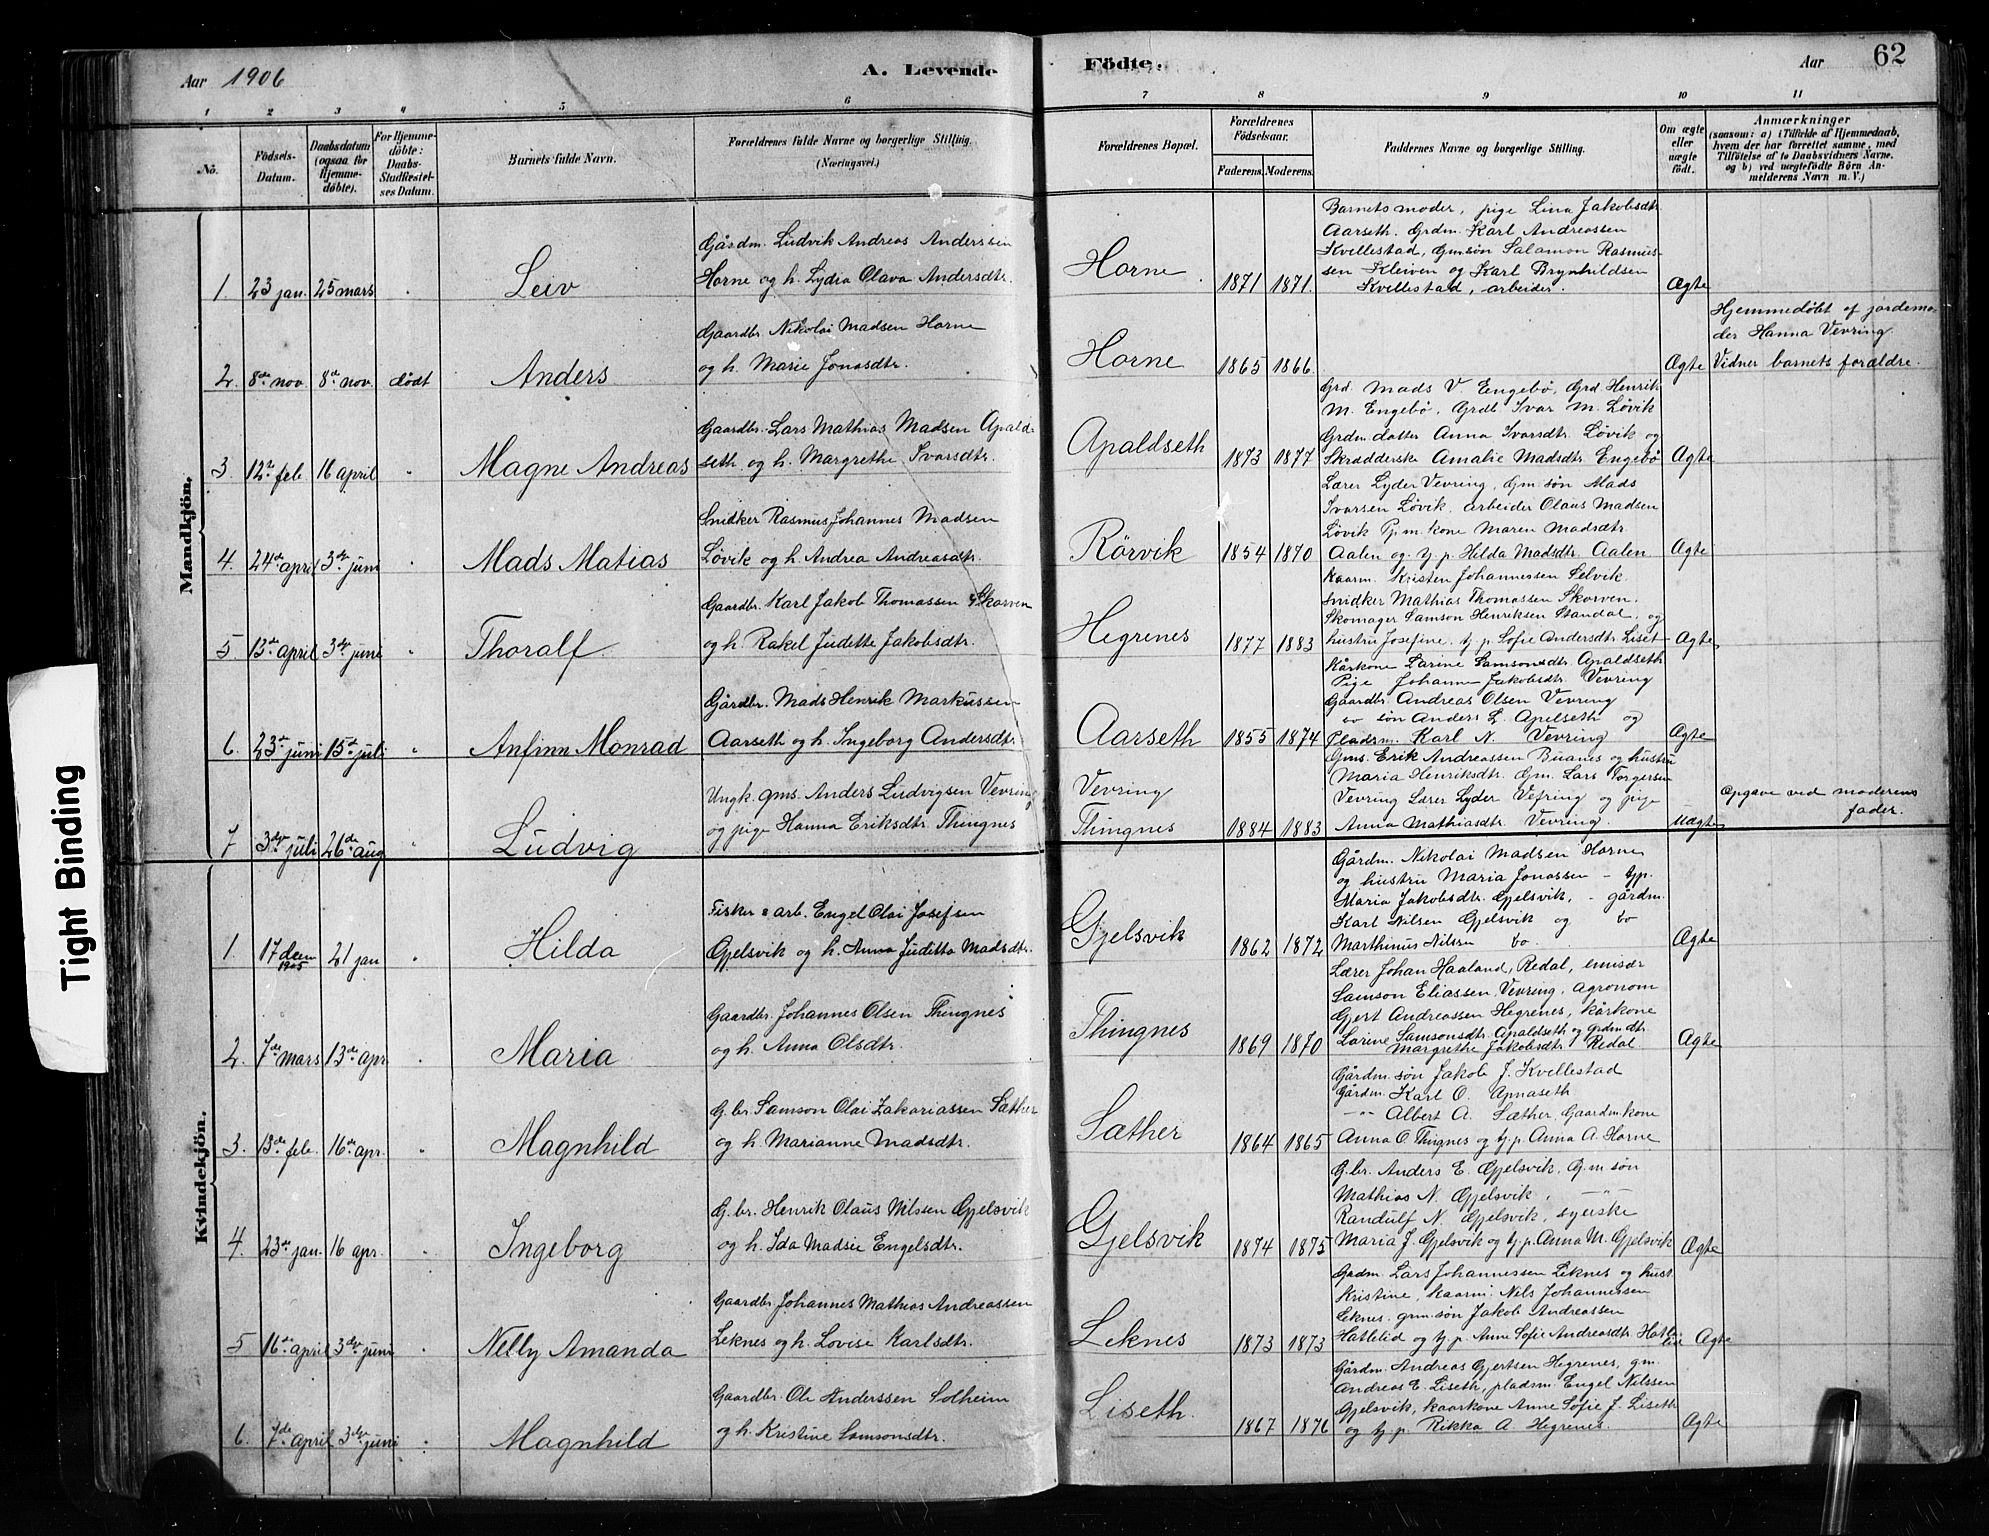 Aar 1906
A. Levende Födte.
Aar
62
1 2 3 4 5 6 7 8 9 10 11
No.
Födsels-Datum.
Daabsdatum (ogsaa for Hjemme-döbte).
For Hjemme-döbte: Daabs-Stadfæstel-ses Datum.
Barnets fulde Navn.
Forældrenes fulde Navne og borgerlige Stilling. (Næringsvei.)
Forældrenes Bopæl.
Forældrenes Födselsaar.
Faderens. Moderens.
Faddernes Navne og borgerlige Stilling.
Om ægte eller uægte födt.
Anmærkninger
(saasom: a) i Tilfælde af Hjemmedaab,
hvem der har forrettet samme, med
Tilföielse af to Daabsvidners Navne,
og b) ved uægtefödte Börn An-
melderens Navn m. V.)
Mandkjön.
1. 23 jan. 25 mars " Leiv
Gårdm. Ludvik Andreas Anderssen
Horne og h. Lydia Olava Andersdtr.
Horne 1871 1871.
Barnets moder, pige Lina Jakobsdtr.
Aarseth. Grdm. Karl Andreassen
Kvellestad, Gmsøn Salamon Rasmus-
sen Kleiven og Karl Brynhildsen
Kvillestad, arbeider.
Ægte
2. 8de nov. 8de nov. dødt Anders
Gaardbr. Nikolai Madsen Horne
og h. Marie Jonasdtr.
Horne 1865 1866.
Ægte
Hjemmedøbt af jordemo-
der Hanna Vevring.
Vidner barnets forældre.
3. 12te feb. 16 april " Magne Andreas
Gaardbr. Lars Mathias Madsen Apald-
seth og h. Margrethe Ivarsdtr.
Apaldseth 1873 1877
Grd. Mads V Engebø, Grd. Henrik
M. Engebø, Grdb Ivar M. Løvik
Grdm.datter Anna Ivarsdtr. Løvik og
Skrædderske Amalie Madsdtr. Engebø
Ægte
4. 24de april 3die juni " Mads Matias
Snidker Rasmus Johannes Madsen
Løvik og h. Andrea Andreasdtr.
Rörvik 1854 1870
Lærer Lyder Vevring, Gm søn Mads
Ivarsen Løvik, arbeider Olaus Madsen
Løvik Pj.m. kone Maren Madsdtr.
Aalen og tj. p. Hilda Madsdtr. Aalen
Ægte
5. 13de april 3die juni " Thoralf.
Gaardbr. Karl Jakob Thomassen Skorven
og h. Rakel Judette Jakobsdtr.
Hegrenes 1877 1883
Kaarm. Kristen Johannessen Selvik.
Snidker Mathias Thomassen Skorven.
Skomager Samson Henriksen Standal, og
hustru Josefine, tj. p. Sofie Andersdtr. Liset
Ægte
6. 23de juni 15de juli " Anfinn Monrad
Gårdbr. Mads Henrik Markussen
Aarseth og h. Ingeborg Andersdtr.
Aarseth 1855 1874
Kårkone Larine Samsonsdtr. Apaldseth
Pige Johanne Jakobsdtr. Vevring
Gaardbr. Andreas Olsen Vevring
do søn Anders L. Apelseth og
Pladsm. Karl N. Vevring
Ægte
7 3die juli 26de aug " Ludvig
Ungk. gms. Anders Ludvigsen Vevring
og pige Hanna Eriksdtr. Thingnes
Vevring
Thingnes 1884 1883
Gms. Erik Andreassen Buanes og hustru
Maria Henriksdtr. Gm. Lars Torgersen
Vevring Lærer Lyder Vefring og pige
Anna Mathiasdtr. Vevring.
Uægte
Opgave ved moderens
fader.
Kvindekjön.
1. 17 dcem 1905 21 jan " Hilda
Fisker & arb. Engel Olai Josefsen
Gjelsvik og h. Anna Juditta Madsdtr.
Gjelsvik 1862 1872
Gårdm. Nikolai Madsen Horne
og hustru Maria Jonassen – tjp.
Maria Jakobsdtr. Gjelsvik, – gårdm.
Karl Nilsen Gjelsvik og do
Marthinus Nilsen do.
Ægte
2. 7de mars 13de apr. " Maria
Gaardbr. Johannes Olsen Thingnes
og h. Anna Olsdtr.
Thingnes 1869 1870
Lærer Johan Haaland, Redal, emisær
Samson Eliassen, Vevring, agronom
Gjert Andreassen Hegrenes, kårkone
Larine Samsonsdtr. Apaldseth og grdm dtr.
Margrethe Jakobsdtr. Redal.
Ægte
3. 13de feb. 16de apr. " Magnhild
G.br. Samson Olai Zakariassen Sæther
og h. Marianne Madsdtr.
Sæther 1864 1865
Gårdm. søn Jakob J. Kvellestad
Gårdm. Karl O. Apnaseth
–"– Albert A. Sæther, Gaardm.kone
Anna O. Thingnes og tj. p. Anna A. Horne
4. 23de jan. 16 apr. " Ingeborg
G.br. Henrik Olaus Nilssen Gjelsvik
og h. Ida Madsie Engelsdtr.
Gjelsvik 1874 1875
G.br. Anders E. Gjelsvik, G.m søn
Mathias N. Gjelsvik, –"–
Randulf N. Gjelsvik, syerske
Maria J. Gjelsvik og tj. p. Anna M. Gjelsvik
Ægte
5 16de april 3die juni " Nelly Amanda
Gaardbr. Johannes Mathias Andreassen
Leknes og h. Lovise Karlsdtr.
Leknes 1873 1873
Grdm. Lars Johannessen Leknes og hust.
Kristine, kaarm. Nils Johannessen
Leknes, grm.søn Jakob Andreassen
Hatlelid og tj. p. Anne Sofie Andreasdtr. Hatle-
lid
Ægte
6. 7de april 3die juni " Magnhild
Gaardbr. Ole Anderssen Solheim
og h. Kristine Samsonsdtr.
Liseth. 1867 1876
Gårdm. Andreas Gjertsen Hegrenes, gm.
Andreas E. Liseth, pladsm. Engel Nilssen
Gjelsvik, kaarkone Anne Sofie J. Liseth
og tj. p. Rikka A. Hegrenes.
Ægte
Tight Binding